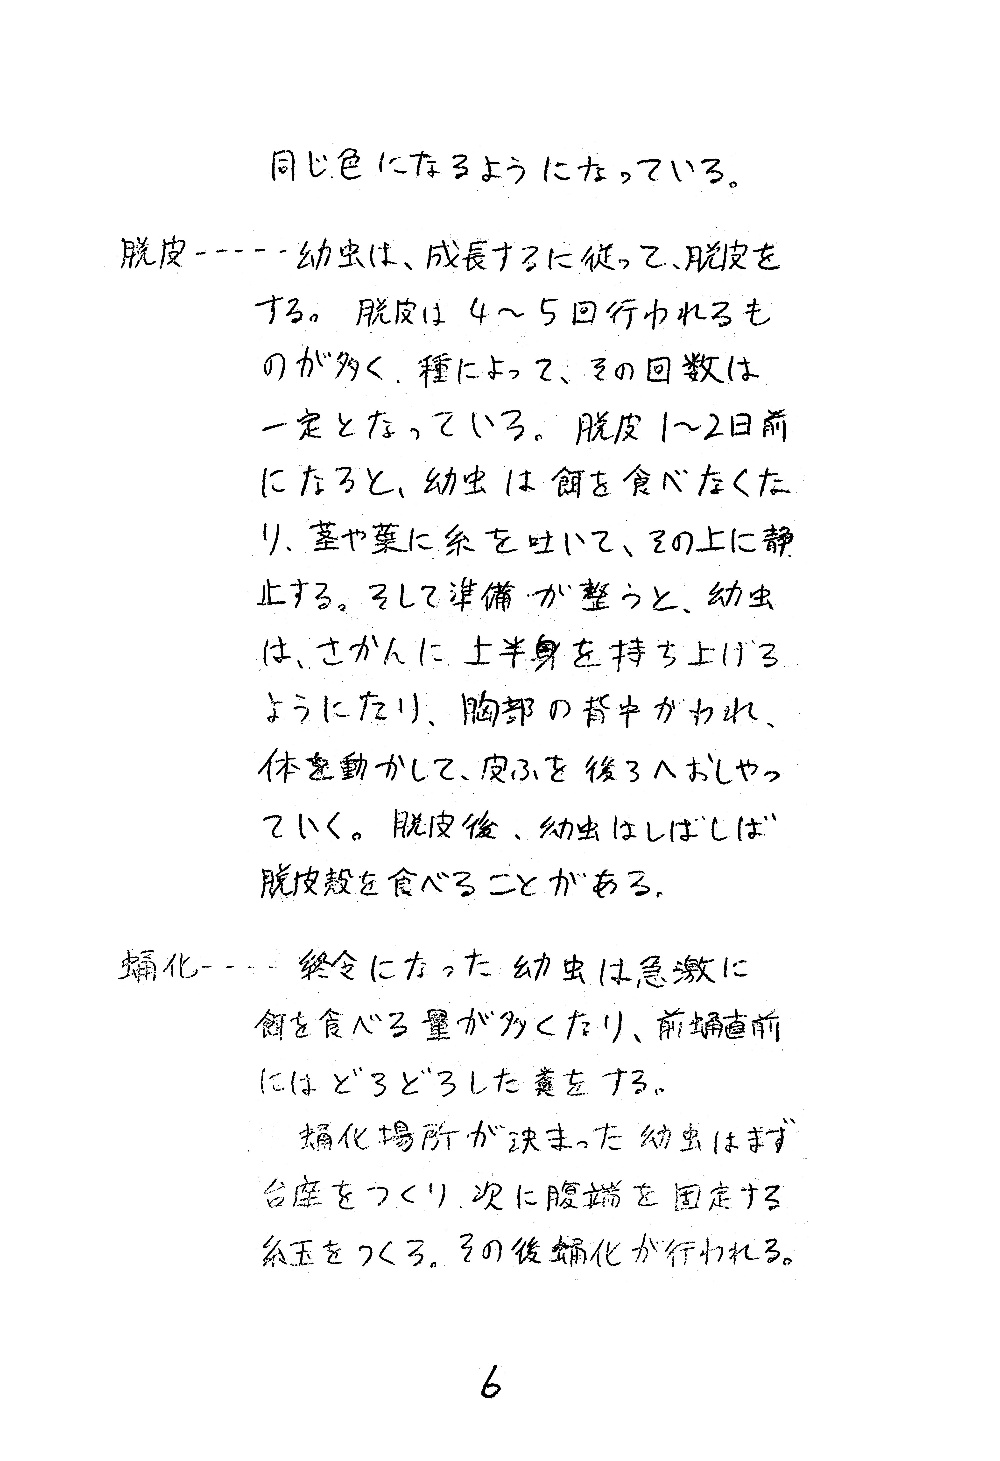 同じ色になるようになっている。
脱皮-----幼虫は、成長するに従って、脱皮を
する。脱皮は4〜5回行われるも
のが多く、種によって、その回数は
一定となっている。脱皮1〜2日前
になると、幼虫は餌を食べなくな
り、茎や葉に糸を吐いて、その上に静
止する。そして準備が整うと、幼虫
は、さかんに上半身を持ち上げる
ようになり、胸部の背中がわれ、
体を動かして、皮ふを後ろへおしやっ
ていく。脱皮後、幼虫はしばしば
脱皮殻を食べることがある。
蛹化----終令になった幼虫は急激に
餌を食べる量が多くなり、前蛹直前
にはどろどろした糞をする。
蛹化場所が決まった幼虫はまず
台座をつくり、次に腹端を固定する
糸玉をつくる。その後蛹化が行われる。
6